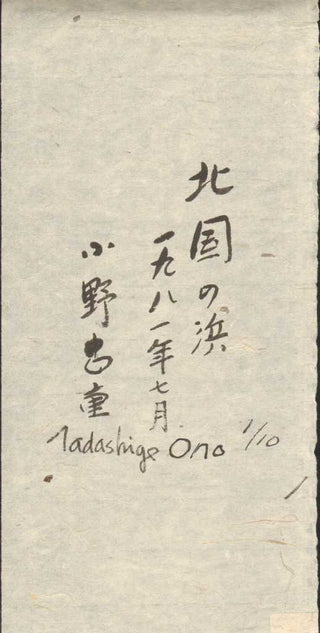 北国の浜
一九八一年七月
小野忠重
Tadashige Ono 1/10